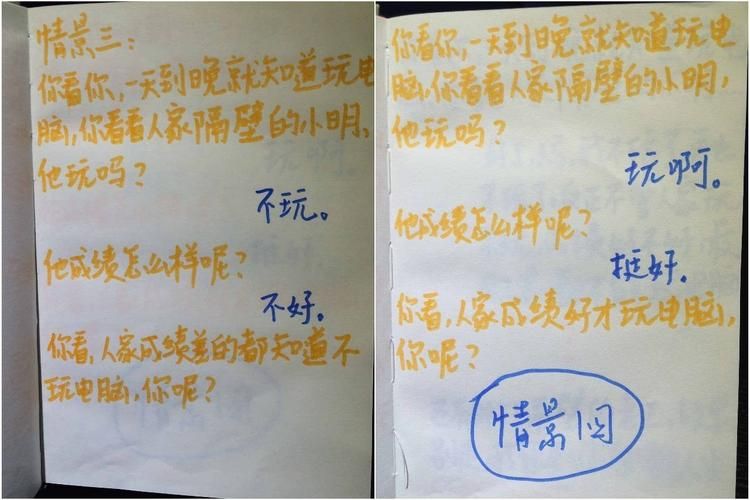 情景三：
你看你，一天到晚就知道玩电
脑，你看看人家隔壁的小明，
他玩吗？
不玩。
他成绩怎么样呢？
不好。
你看，人家成绩差的都知道不
玩电脑，你呢？
你看你，一天到晚就知道玩电
脑，你看看人家隔壁的小明，
他玩吗？
玩啊。
他成绩怎么样呢？
挺好。
你看，人家成绩好才玩电脑，
你呢？
情景四